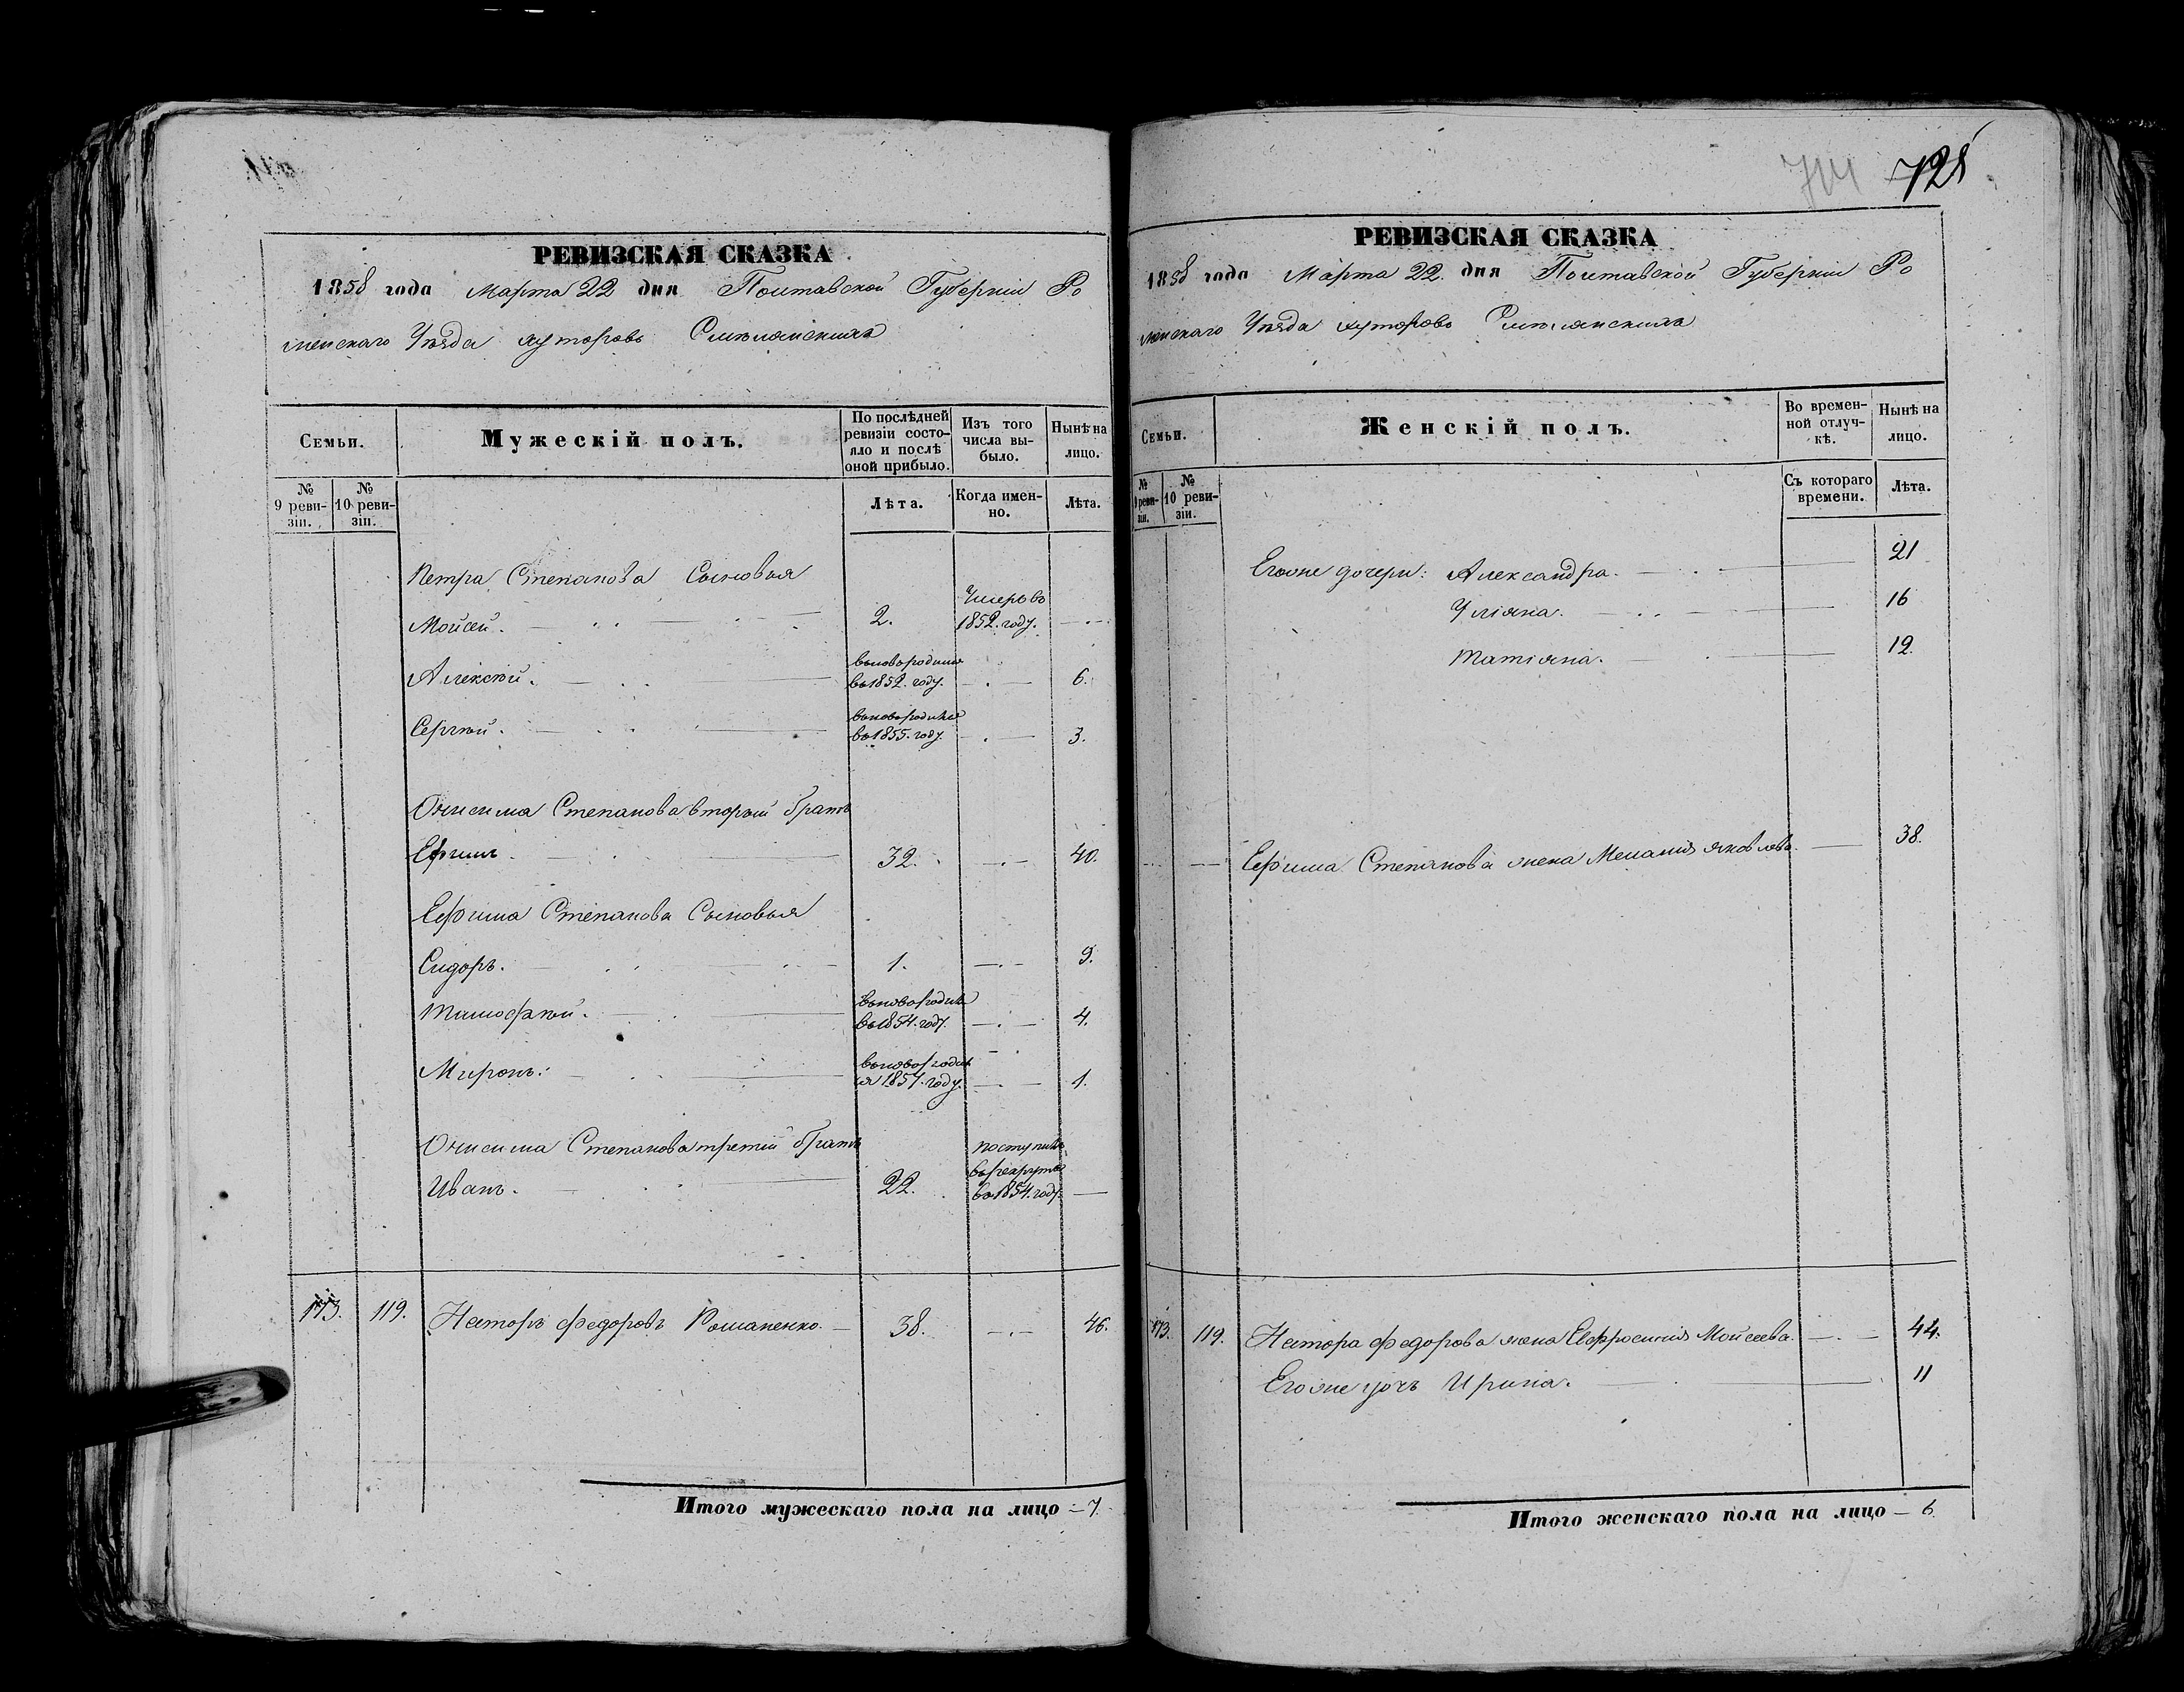 714 721
РЕВИЗСКАЯ СКАЗКА
1858 года Марта 22 дня Полтавской Губерніи Ро
менскаго Уѣзда хуторовъ Смѣлянскихъ
Семьи.
Мужескій полъ.
По послѣдней ревизіи состояло и послѣ оной прибыло.
Изъ того числа выбыло.
Нынѣ на лицо.
№ 9 ревизіи.
№ 10 ревизіи.
Лѣта.
Когда именно.
Лѣта.
Петра Степанова Сыновья
Мойсей. 2. Умеръ въ 1852. году.
Алексѣй. вновь родился въ 1852. году. 6.
Сергѣй. вновь родился въ 1855. году. 3.
Онисима Степанова вторый братъ
Ефимъ. 32. 40.
Ефима Степанова Сыновья
Сидоръ. 1. 9.
Тимофѣй. вновь родился въ 1854. году. 4.
Миронъ. вновь родил ся 1857. году. 1.
Онисима Степанова третій братъ
Иванъ. 22. поступилъ въ рекруты въ 1854. году.
173. 119. Несторъ Федоровъ Романенко. 38. 46.
Итого мужескаго пола на лицо - 7.
РЕВИЗСКАЯ СКАЗКА
1858 года Марта 22. дня Полтавской Губерніи Ро
менскаго Уѣзда хуторовъ Смѣлянскихъ
Семьи.
Женскій полъ.
Во временной отлучкѣ.
Нынѣ на лицо.
№ 9 ревизіи.
№ 10 ревизіи.
Съ котораго времени.
Лѣта.
Егоже дочери: Александра. 21
Уліяна. 16
Татіяна. 12.
Ефима Степанова жена Меланія Яковлева. 38.
173. 119. Нестора Федорова жена Евфросинія Мойсеева. 44.
Егоже дочь Ирина. 11
Итого женскаго пола на лицо - 6.